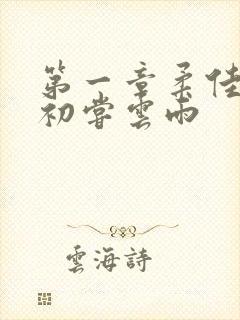 第一章柔佳
初嘗雲雨
雲海詩